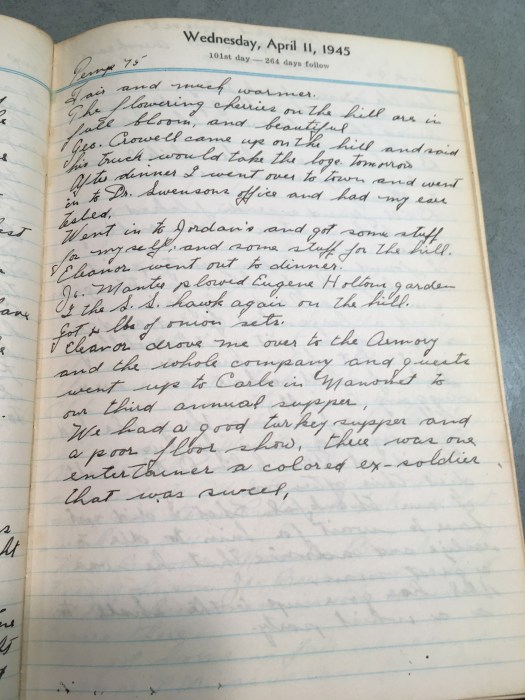 Wednesday, April 11, 1945
101st day — 264 days follow
Temp 75
Fair and much warmer.
The flowering cherries on the hill are in
full bloom, and beautiful
Geo. Crowell came up on the hill and said
his truck would take the logs tomorrow
After dinner I went over to town and went
in to Dr. Swensons office and had my ears
tested.
Went in to Jordan's and got some stuff
for myself, and some stuff for the hill.
Eleanor went out to dinner.
Mantie plowed Eugene Holtons garden
the S.S. hawk again on the hill.
Got lbs of onion sets.
Eleanor drove me over to the Armory
and the whole company and guests
went up to Carls in Manomet to
our third annual supper,
We had a good turkey supper and
a poor floor show, there was one
entertainer a colored ex-soldier
that was swell,